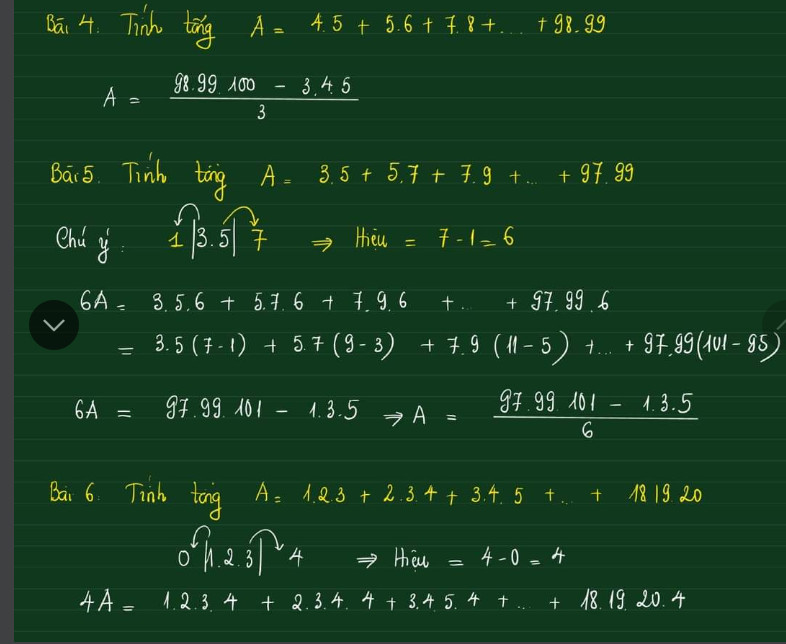 Bài 4. Tính tổng A = 4.5 + 5.6 + 7.8 + ... + 98.99
A = \frac{98.99.100 - 3.4.5}{3}
Bài 5. Tính tổng A = 3.5 + 5.7 + 7.9 + ... + 97.99
Chú ý: 1 |3.5| 7 ⇒ Hiệu = 7-1 = 6
6A = 3.5.6 + 5.7.6 + 7.9.6 + ... + 97.99.6
= 3.5(7-1) + 5.7(9-3) + 7.9(11-5) + ... + 97.99(101-95)
6A = 97.99.101 - 1.3.5 ⇒ A = \frac{97.99.101 - 1.3.5}{6}
Bài 6. Tính tổng A = 1.2.3 + 2.3.4 + 3.4.5 + ... + 18.19.20
0 |1.2.3| 4 ⇒ Hiệu = 4-0 = 4
4A = 1.2.3.4 + 2.3.4.4 + 3.4.5.4 + ... + 18.19.20.4